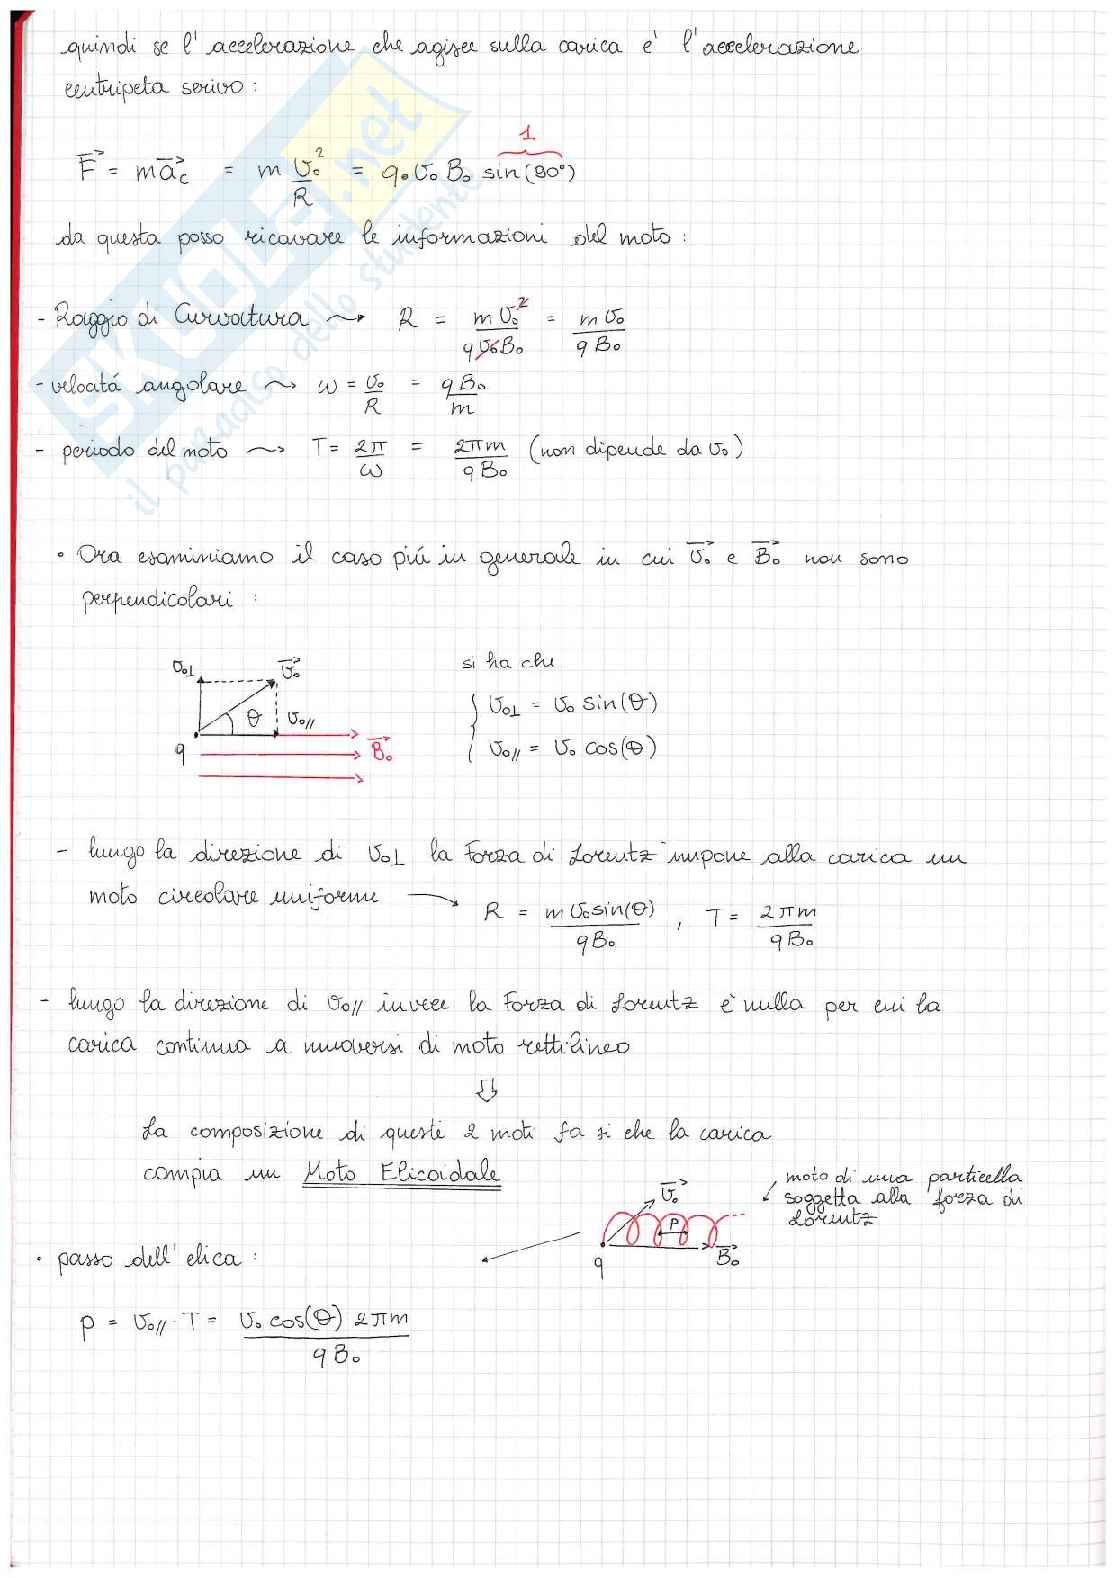 quindi se l'accelerazione che agisce sulla carica è l'accelerazione
centripeta scrivo:
1
F⃗ = m a⃗c = m v₀²/R = q₀ v₀ B₀ sin(90°)
da questa posso ricavare le informazioni del moto:
- Raggio di Curvatura ⤳ R = m v₀²/(q v₀ B₀) = m v₀/(q B₀)
- velocitá angolare ⤳ ω = v₀/R = q B₀/m
- periodo del moto ⤳ T = 2π/ω = 2πm/(q B₀) (non dipende da v₀)
• Ora esaminiamo il caso piú in generale in cui v⃗₀ e B⃗₀ non sono
perpendicolari:
v₀⊥ v⃗₀ si ha che
θ v₀// { v₀⊥ = v₀ sin(θ)
q B⃗₀ v₀// = v₀ cos(θ)
- lungo la direzione di v₀⊥ la Forza di Lorentz impone alla carica un
moto circolare uniforme → R = m v₀ sin(θ)/(q B₀) , T = 2πm/(q B₀)
- lungo la direzione di v₀// invece la Forza di Lorentz è nulla per cui la
carica continua a muoversi di moto rettilineo
⇓
La composizione di queste 2 moti fa si che la carica
compia un Moto Elicoidale
moto di una particella
soggetta alla forza di
Lorentz
v⃗₀ p q B⃗₀
• passo dell'elica:
p = v₀// · T = v₀ cos(θ) 2πm/(q B₀)
SKUOLA.net
il paradiso dello studente